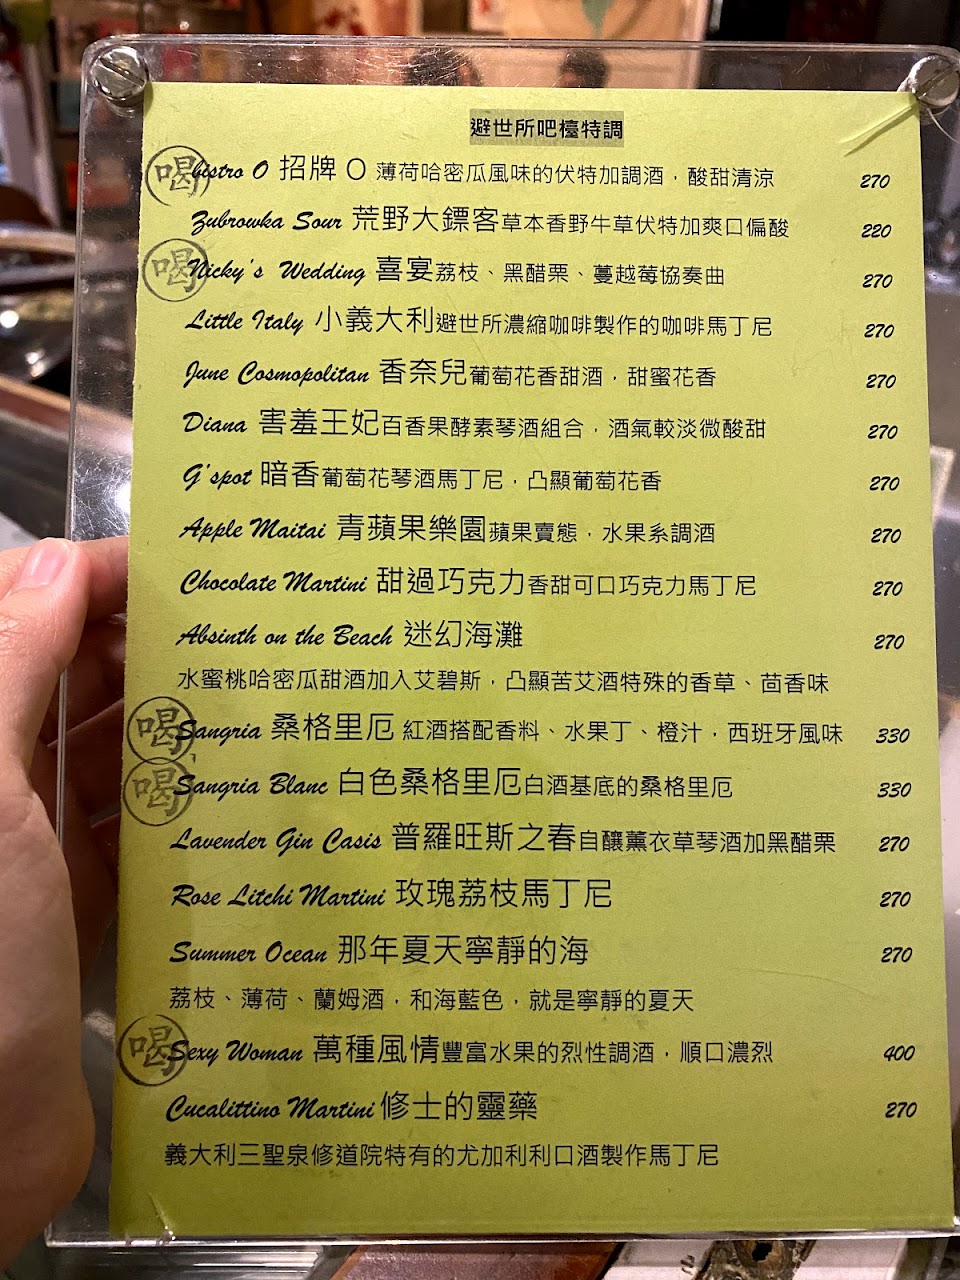 避世所吧檯特調
喝 bistro O 招牌 O 薄荷哈密瓜風味的伏特加調酒，酸甜清涼 270
Zubrowka Sour 荒野大鏢客草本香野牛草伏特加爽口偏酸 220
喝 Nicky's Wedding 喜宴荔枝、黑醋栗、蔓越莓協奏曲 270
Little Italy 小義大利避世所濃縮咖啡製作的咖啡馬丁尼 270
June Cosmopolitan 香奈兒葡萄花香甜酒，甜蜜花香 270
Diana 害羞王妃百香果酵素琴酒組合，酒氣較淡微酸甜 270
G'spot 暗香葡萄花琴酒馬丁尼，凸顯葡萄花香 270
Apple Maitai 青蘋果樂園蘋果賣態，水果系調酒 270
Chocolate Martini 甜過巧克力香甜可口巧克力馬丁尼 270
Absinth on the Beach 迷幻海灘 270
水蜜桃哈密瓜甜酒加入艾碧斯，凸顯苦艾酒特殊的香草、茴香味
喝 Sangria 桑格里厄 紅酒搭配香料、水果丁、橙汁，西班牙風味 330
喝 Sangria Blanc 白色桑格里厄白酒基底的桑格里厄 330
Lavender Gin Casis 普羅旺斯之春自釀薰衣草琴酒加黑醋栗 270
Rose Litchi Martini 玫瑰荔枝馬丁尼 270
Summer Ocean 那年夏天寧靜的海 270
荔枝、薄荷、蘭姆酒，和海藍色，就是寧靜的夏天
喝 Sexy Woman 萬種風情豐富水果的烈性調酒，順口濃烈 400
Cucalittino Martini 修士的靈藥 270
義大利三聖泉修道院特有的尤加利利口酒製作馬丁尼